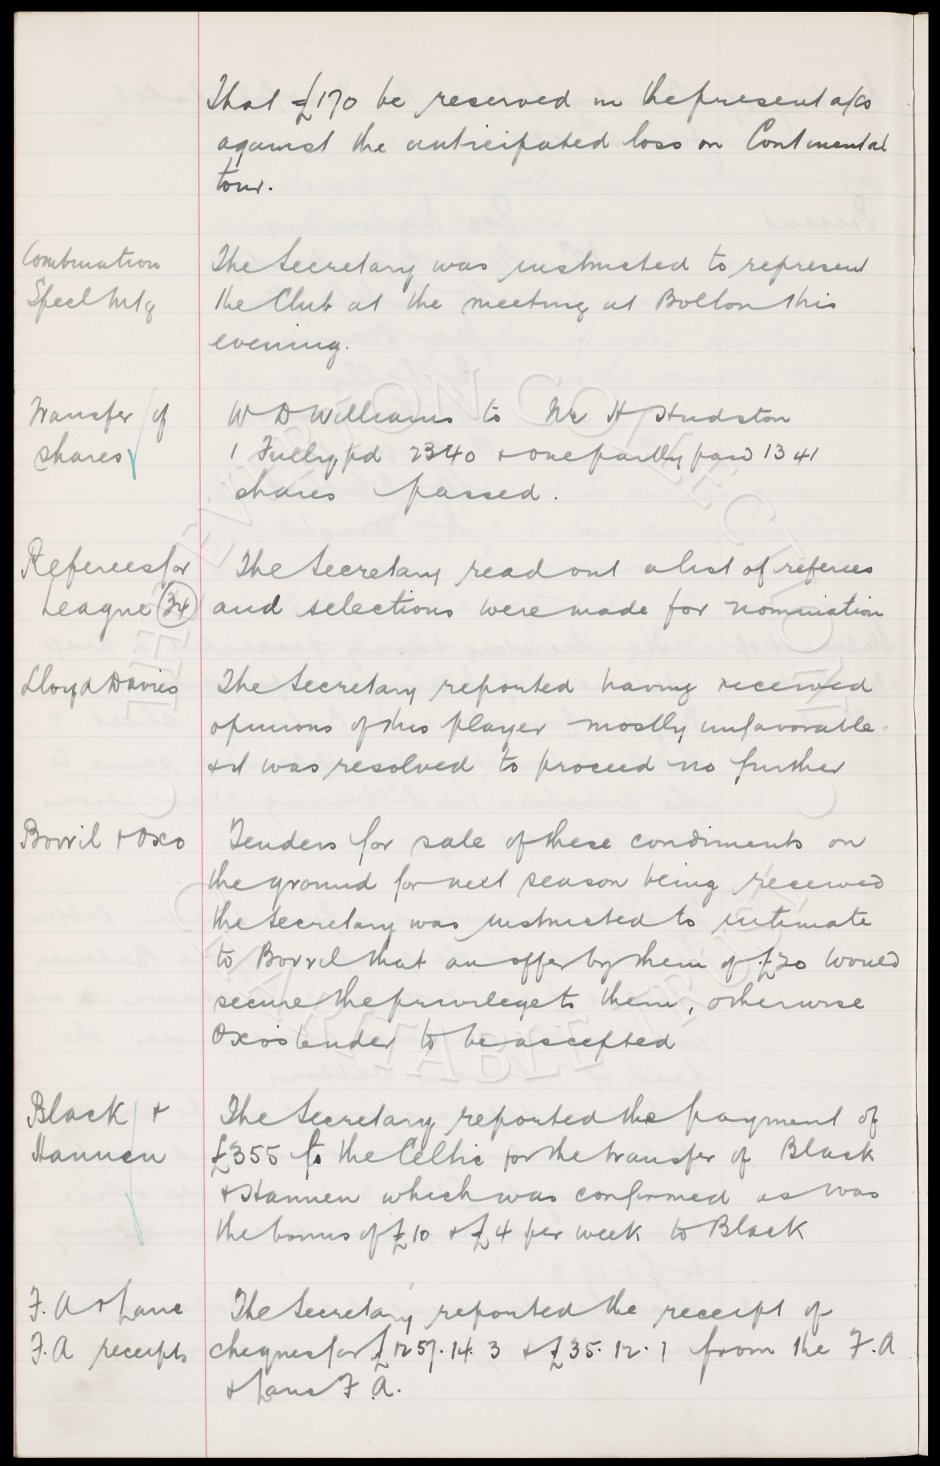 That £170 be reserved in the present a/cs
against the anticipated loss on Continental
tour.
Combination
Specl Mtg
The Secretary was instructed to represent
the Club at the meeting at Bolton this
evening.
Transfer of
shares
W D Williams to Mr H Hudston
1 Fully pd 2340 + one partly paid 1341
shares passed.
Referees for
League 34
The Secretary read out a list of referees
and selections were made for nomination
Lloyd Davies
The Secretary reported having received
opinions of this player mostly unfavorable
& it was resolved to proceed no further
Bovril & Oxo
Tenders for sale of these condiments on
the ground for next season being received
the Secretary was instructed to intimate
to Bovril that an offer by them of £20 would
secure the privilege to them, otherwise
Oxos tender to be accepted
Black &
Hannen
The Secretary reported the payment of
£355 to the Celtic for the transfer of Black
& Hannen which was confirmed as was
the bonus of £10 & £4 per week to Black
F. A & Lanc
F. A receipts
The Secretary reported the receipt of
cheques for £1257. 14. 3 & £35. 12. 1 from the F. A
& Lanc F. A.
THE EVERTON COLLECTION
CHARITABLE TRUST